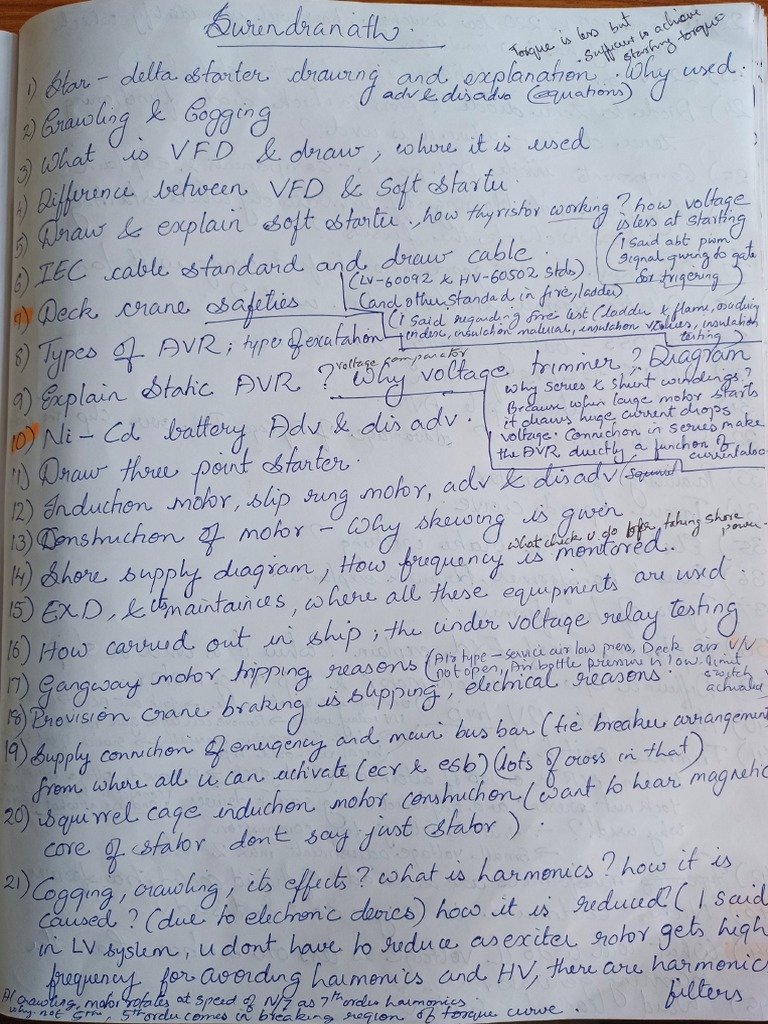 Surendranath.
Torque is less but
sufficient to achieve
starting torque
1) Star - delta starter drawing and explanation. Why used.
adv & disadv (equations)
2) Crawling & Cogging
3) What is VFD & draw, where it is used
4) Difference between VFD & Soft Starter
5) Draw & explain soft starter., how thyristor working? how voltage
is less at starting
(I said abt pwm
signal giving to gate
for trigering)
6) IEC cable standard and draw cable.
(LV-60092 & HV-60502 stds)
(and other standard in fire, ladder)
7) Deck crane safeties
(I said regarding fire test (ladder & flame,
index, insulation material, insulation values, insulation
testing)
8) Types of AVR; type of excitation
9) Explain Static AVR? Why voltage trimmer? Diagram
voltage comparator
Why series & shunt windings?
Because when large motor starts
it draws huge current drops
voltage. Connection in series make
the AVR directly a function of
current also
10) Ni-Cd battery Adv & disadv.
11) Draw three point starter.
12) Induction motor, slip ring motor, adv & disadv
13) Construction of motor - Why skewing is given
What check u do befor taking shore
power.
14) Shore supply diagram, How frequency is montored.
15) EX.D, & its maintainces, where all these equipments are used.
16) How carried out in ship; the under voltage relay testing
17) Gangway motor tripping reasons (Air type - service air low press, Deck air V/V
not open, Air bottle pressure is low. limit
switch
activated
18) Provision crane braking is slipping, electrical reasons.
19) Supply connection of emergency and main bus bar (tie breaker arrangement
from where all u can activate (ecr & esb) (lots of cross in that)
20) squirrel cage induction motor construction (want to hear magnetic
core of stator dont say just stator).
21) Cogging, crawling, its effects? what is harmonics? how it is
caused? (due to electronic devices) how it is reduced? (I said
in LV system, u dont have to reduce as exciter rotor gets high
frequency for avoiding harmonics and HV, there are harmonic
filters
A) crawling, motor rotates at speed of N/7 as 7th order harmonics
why not 5th, 5th order comes in breaking region of torque curve.